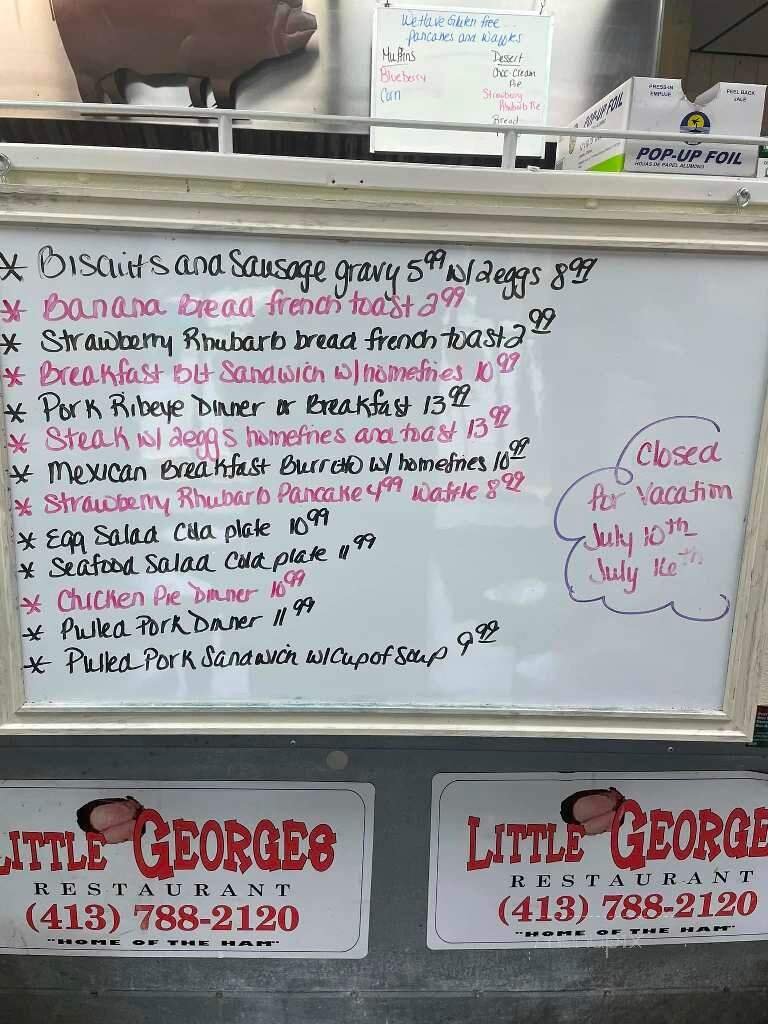 We Have Gluten free
Pancakes and Waffles
Muffins
Blueberry
Corn
Dessert
Choc-Cream
Pie
Strawberry
Rhubarb Pie
Bread
PRESS IN
EMPUJE
PEEL BACK
JALE
POP-UP FOIL
POP-UP FOIL
HOJAS DE PAPEL ALUMINIO
* Biscuits and Sausage gravy 5.99 w/ 2 eggs 8.99
* Banana Bread french toast 2.99
* Strawberry Rhubarb bread french toast 2.99
* Breakfast Blt Sandwich w/ homefries 10.99
* Pork Ribeye Dinner or Breakfast 13.99
* Steak w/ 2 eggs homefries and toast 13.99
* Mexican Breakfast Burrito w/ homefries 10.99
* Strawberry Rhubarb Pancake 4.99 Waffle 8.99
* Egg Salad Cold plate 10.99
* Seafood Salad Cold plate 11.99
* Chicken Pie Dinner 10.99
* Pulled Pork Dinner 11.99
* Pulled Pork Sandwich w/ Cup of Soup 9.99
Closed
for Vacation
July 10th
July 16th
LITTLE GEORGES
RESTAURANT
(413) 788-2120
"HOME OF THE HAM"
LITTLE GEORGE
RESTAURANT
(413) 788-2120
"HOME OF THE HAM"